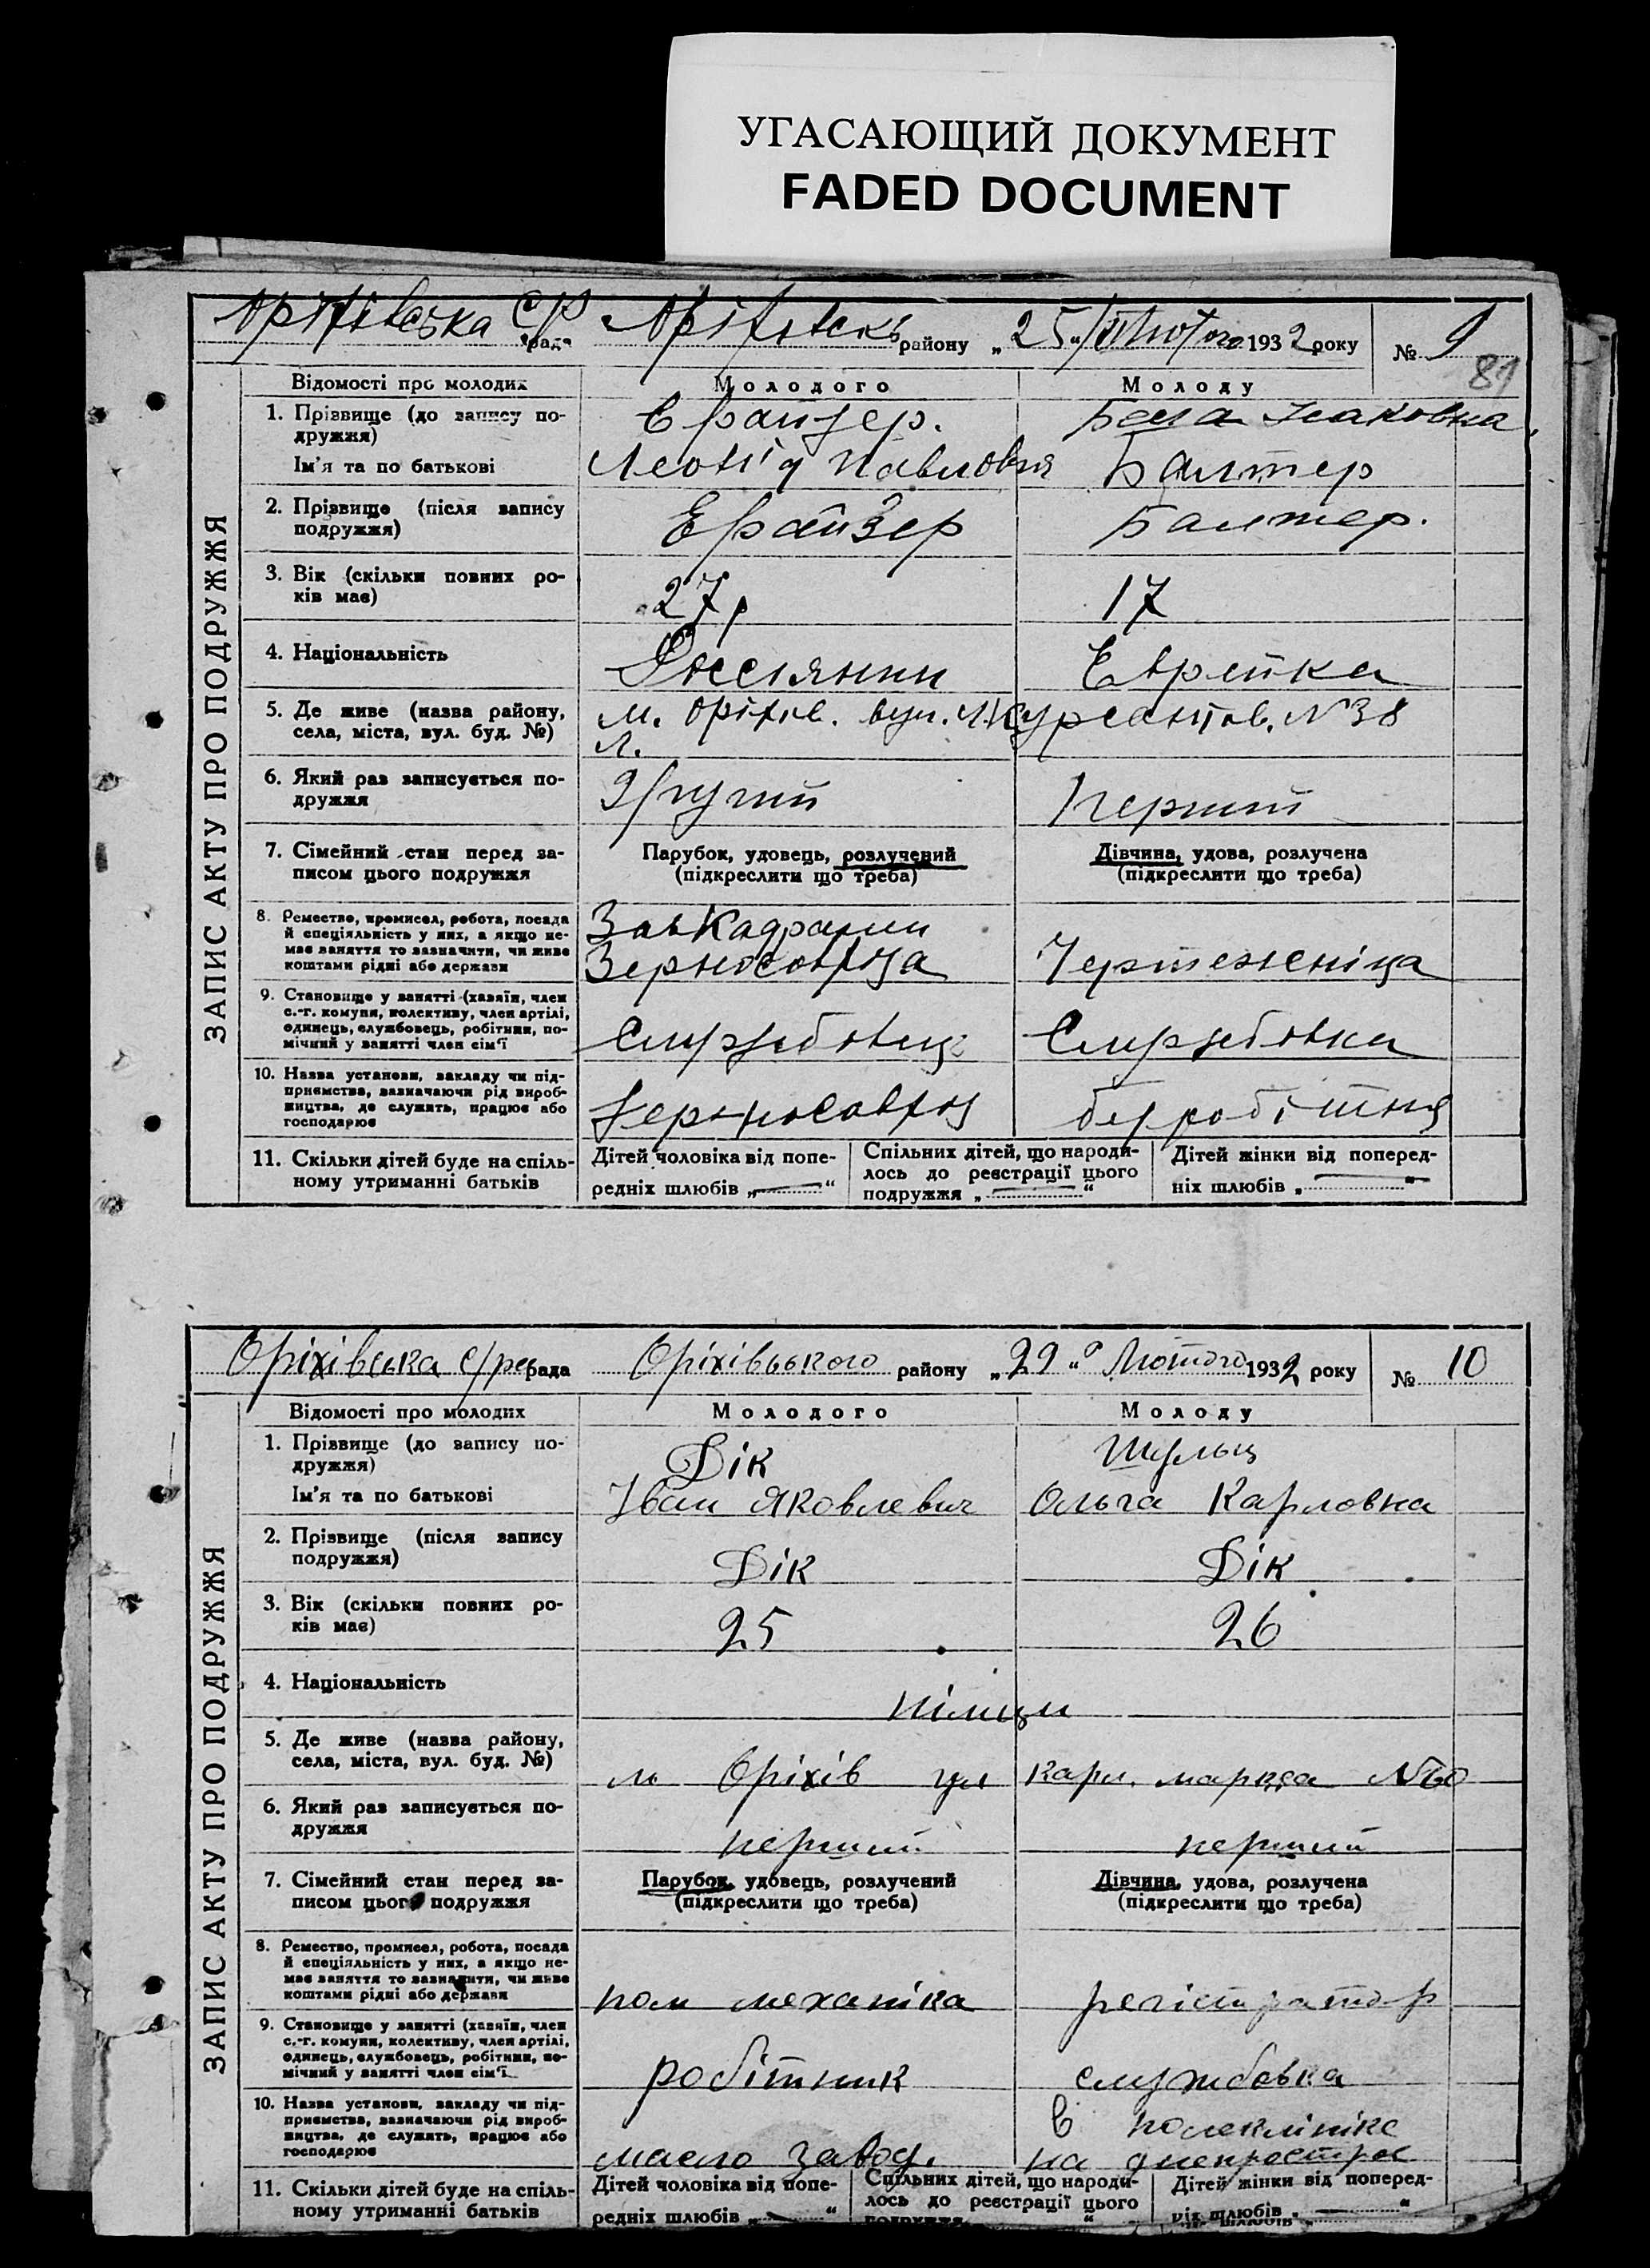 УГАСАЮЩИЙ ДОКУМЕНТ
FADED DOCUMENT
Оріхівська С/Р рада Оріхівськ району „25“ Лютого 1932 року № 9
81
Відомості про молодих Молодого Молоду
1. Прізвище (до запису подружжя) Ерайзер. Бела Исаковна
Ім'я та по батькові Леонід Павлович Балтер
2. Прізвище (після запису подружжя) Ерайзер Балтер.
3. Вік (скільки повних років має) 27 р 17
4. Національність Россіянин Еврейка
5. Де живе (назва району, села, міста, вул. буд. №) м. Оріхів. вул. Курсантів. N 38
6. Який раз записується подружжя Другий Перший
7. Сімейний стан перед записом цього подружжя Парубок, удовець, розлучений (підкреслити що треба) Дівчина, удова, розлучена (підкреслити що треба)
8. Ремество, промисел, робота, посада й спеціяльність у них, а якщо немає заняття то зазначити, чи живе коштами рідні або держави Завкадрами Зерносовхоза Чертежніца
9. Становище у занятті (хазяїн, член с.-г. комуни, колективу, член артілі, одинець, службовець, робітник, помічний у занятті член сім'ї Службовець Службовка
10. Назва установи, закладу чи підприємства, зазначаючи рід виробництва, де служить, працює або господарює Зерносовхоз безробітня
11. Скільки дітей буде на спільному утриманні батьків Дітей чоловіка від попередніх шлюбів „—“ Спільних дітей, що народилось до реєстрації цього подружжя „—“ Дітей жінки від попередніх шлюбів „—“
ЗАПИС АКТУ ПРО ПОДРУЖЖЯ
Оріхівська с/рада Оріхівського району „29“ Лютого 1932 року № 10
Відомості про молодих Молодого Молоду
1. Прізвище (до запису подружжя) Дік Шульц
Ім'я та по батькові Іван Яковлевич Ольга Карловна
2. Прізвище (після запису подружжя) Дік Дік
3. Вік (скільки повних років має) 25 26
4. Національність німци
5. Де живе (назва району, села, міста, вул. буд. №) м Оріхів ул Карл. маркса N 60
6. Який раз записується подружжя перший перший
7. Сімейний стан перед записом цього подружжя Парубок, удовець, розлучений (підкреслити що треба) Дівчина, удова, розлучена (підкреслити що треба)
8. Ремество, промисел, робота, посада й спеціяльність у них, а якщо немає заняття то зазначити, чи живе коштами рідні або держави пом механіка регістратор
9. Становище у занятті (хазяїн, член с.-г. комуни, колективу, член артілі, одинець, службовець, робітник, помічний у занятті член сім'ї робітник службовка
10. Назва установи, закладу чи підприємства, зазначаючи рід виробництва, де служить, працює або господарює масло завод. в полеклініке на днепрострое
11. Скільки дітей буде на спільному утриманні батьків Дітей чоловіка від попередніх шлюбів „—“ Спільних дітей, що народилось до реєстрації цього подружжя Дітей жінки від попередніх шлюбів „—“
ЗАПИС АКТУ ПРО ПОДРУЖЖЯ